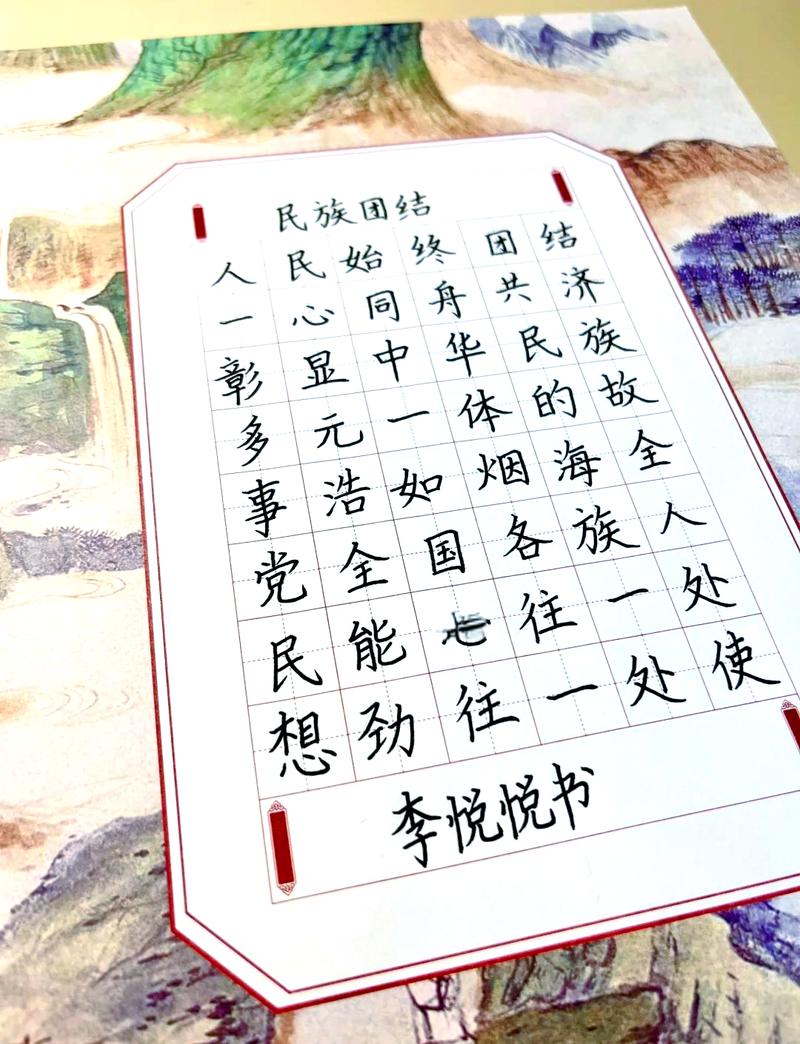 民族团结
人民始终团结
一心同舟共济
彰显中华民族
多元一体的故
事浩如烟海全
党全国各族人
民能往一处
想劲往一处使
李悦悦书